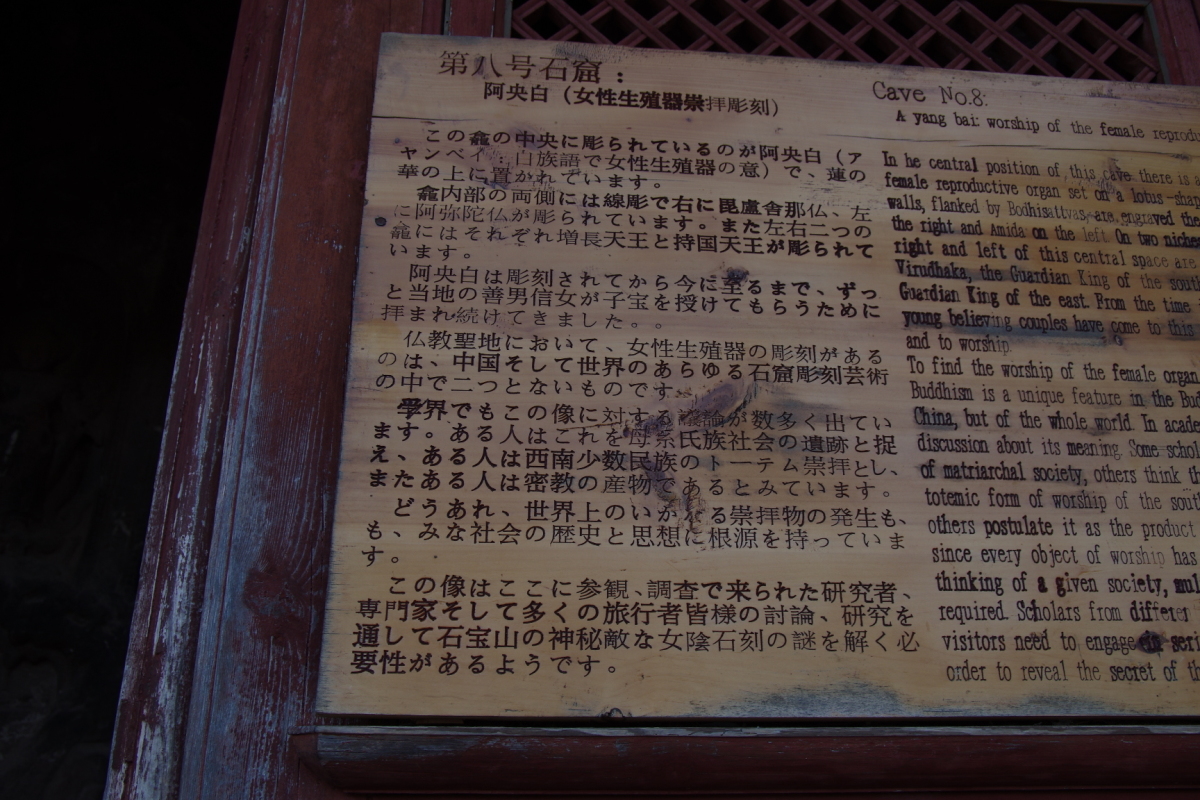 第八号石窟：
阿央白（女性生殖器崇拝彫刻）
この龕の中央に彫られているのが阿央白（ア
ヤンベイ：白族語で女性生殖器の意）で、蓮の
華の上に置かれています。
龕内部の両側には線彫で右に毘盧舎那仏、左
に阿弥陀仏が彫られています。また左右二つの
龕にはそれぞれ増長天王と持国天王が彫られて
います。
阿央白は彫刻されてから今に至るまで、ずっ
と当地の善男信女が子宝を授けてもらうために
拝まれ続けてきました。。
仏教聖地において、女性生殖器の彫刻がある
のは、中国そして世界のあらゆる石窟彫刻芸術
の中で二つとないものです。
学界でもこの像に対する議論が数多く出てい
ます。ある人はこれを母系氏族社会の遺跡と捉
え、ある人は西南少数民族のトーテム崇拝とし、
またある人は密教の産物であるとみています。
どうあれ、世界上のいかなる崇拝物の発生も、
も、みな社会の歴史と思想に根源を持っていま
す。
この像はここに参観、調査で来られた研究者、
専門家そして多くの旅行者皆様の討論、研究を
通して石宝山の神秘敵な女陰石刻の謎を解く必
要性があるようです。
Cave No.8:
A yang bai: worship of the female reprodu
In he central position of this cave there is a
female reproductive organ set on a lotus-shap
walls, flanked by Bodhisattvas are engraved the
the right and Amida on the left. On two niches
right and left of this central space are
Virudhaka, the Guardian King of the south
Guardian King of the east. From the time
young believing couples have come to this
and to worship.
To find the worship of the female organ
Buddhism is a unique feature in the Bud
China, but of the whole world. In acade
discussion about its meaning. Some schol
of matriarchal society, others think th
totemic form of worship of the sout
others postulate it as the product
since every object of worship has
thinking of a given society, mul
required. Scholars from differe
visitors need to engage in seri
order to reveal the secret of th